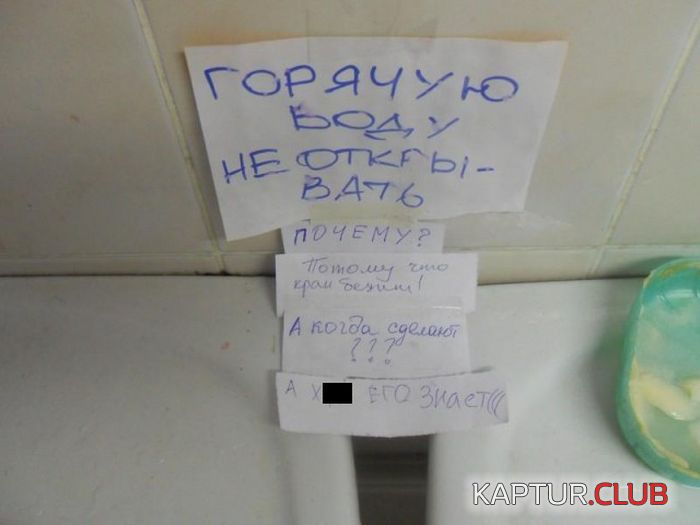 ГОРЯЧУЮ
ВОДУ
НЕ ОТКРЫ-
ВАТЬ
ПОЧЕМУ?
Потому что
кран бежит!
А когда сделают
???
А Х ЕГО Знает(((
KAPTUR.CLUB